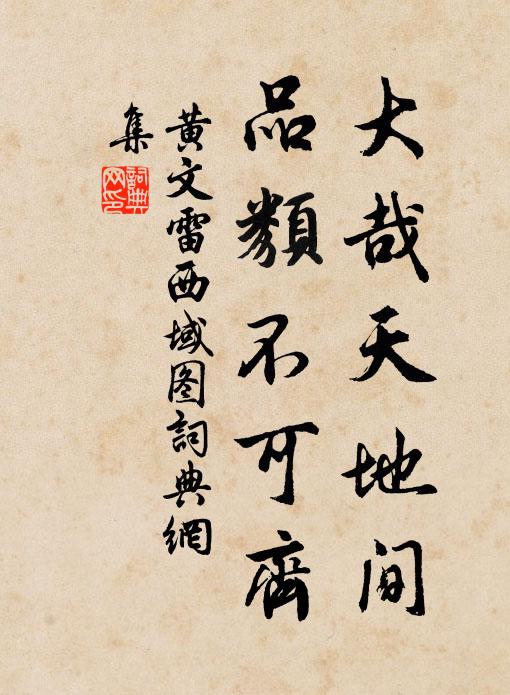 大哉天地間
品類不可齊
黄文雷西域图詞典網
集
詞典
网印